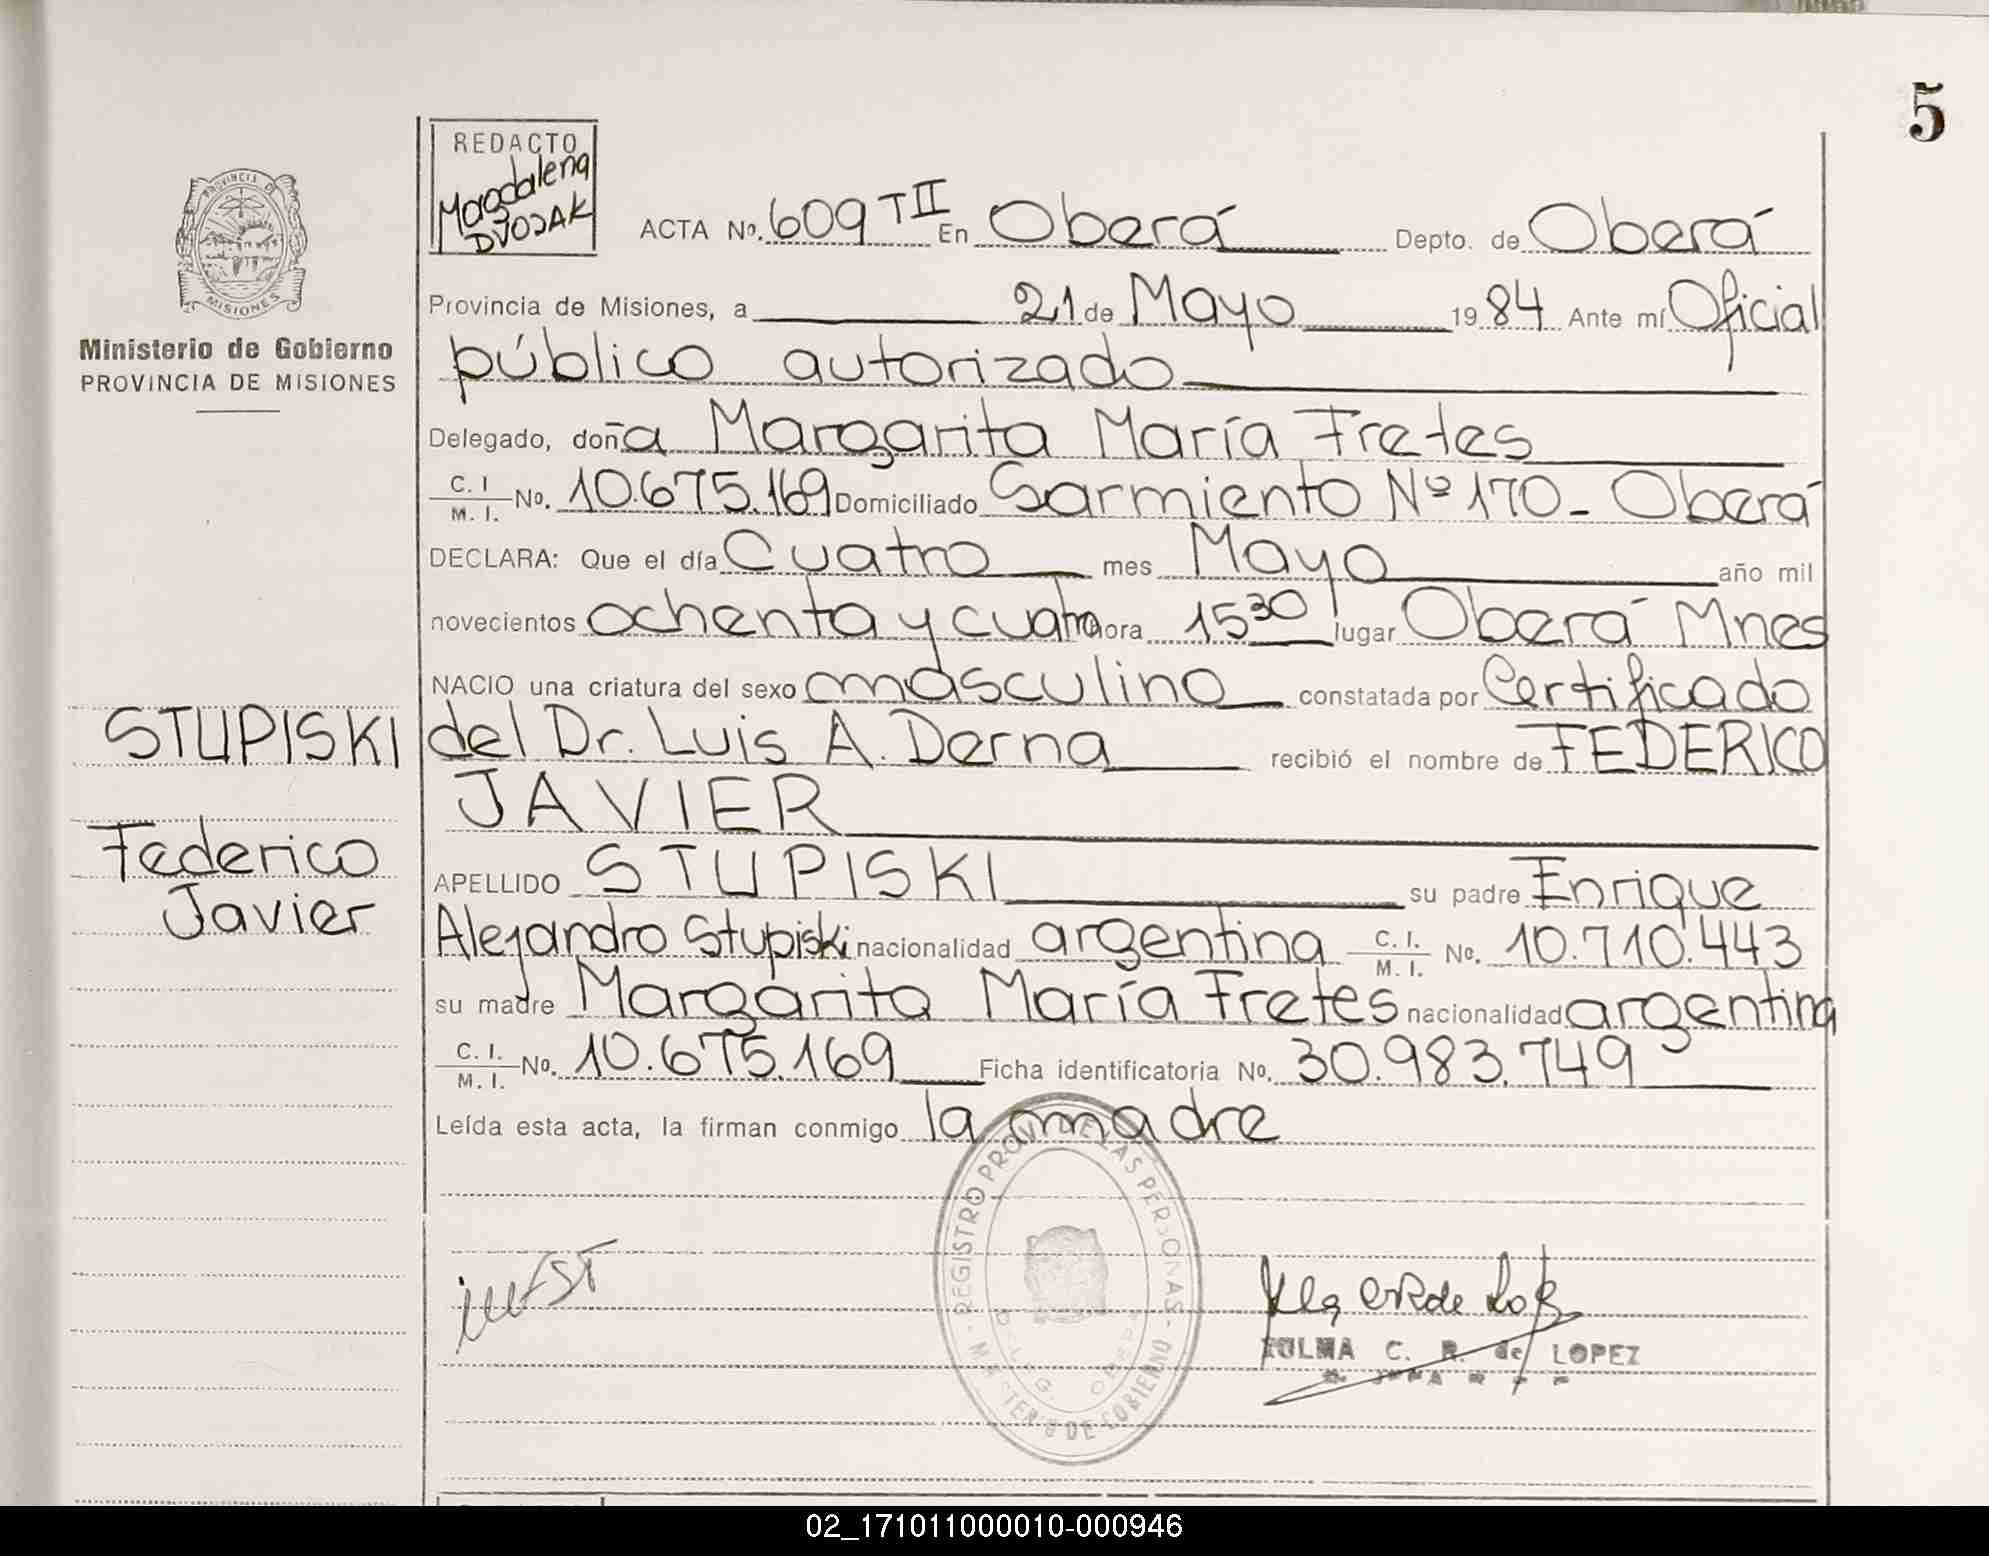 5
REDACTO
Magdalena
DVOJAK
PROVINCIA DE
MISIONES
Ministerio de Gobierno
PROVINCIA DE MISIONES
ACTA No. 609 TII En Oberá Depto. de Oberá
Provincia de Misiones, a 21 de Mayo 1984 Ante mí Oficial
público autorizado
Delegado, doña Margarita María Fretes
C. I. M. I. No. 10.675.169 Domiciliado Sarmiento Nº 170 - Oberá
DECLARA: Que el día Cuatro mes Mayo año mil
novecientos ochenta y cuatro hora 15 30 lugar Oberá Mnes
NACIO una criatura del sexo masculino constatada por Certificado
del Dr. Luis A. Derna recibió el nombre de FEDERICO
JAVIER
STUPISKI
Federico
Javier
APELLIDO STUPISKI su padre Enrique
Alejandro Stupiski nacionalidad argentina C. I. M. I. No. 10.710.443
su madre Margarita María Fretes nacionalidad argentina
C. I. M. I. No. 10.675.169 Ficha identificatoria No. 30.983.749
Leída esta acta, la firman conmigo la madre
REGISTRO PROV. DE LAS PERSONAS
MINISTERIO DE GOBIERNO
C. R. de LOPEZ
02_171011000010-000946